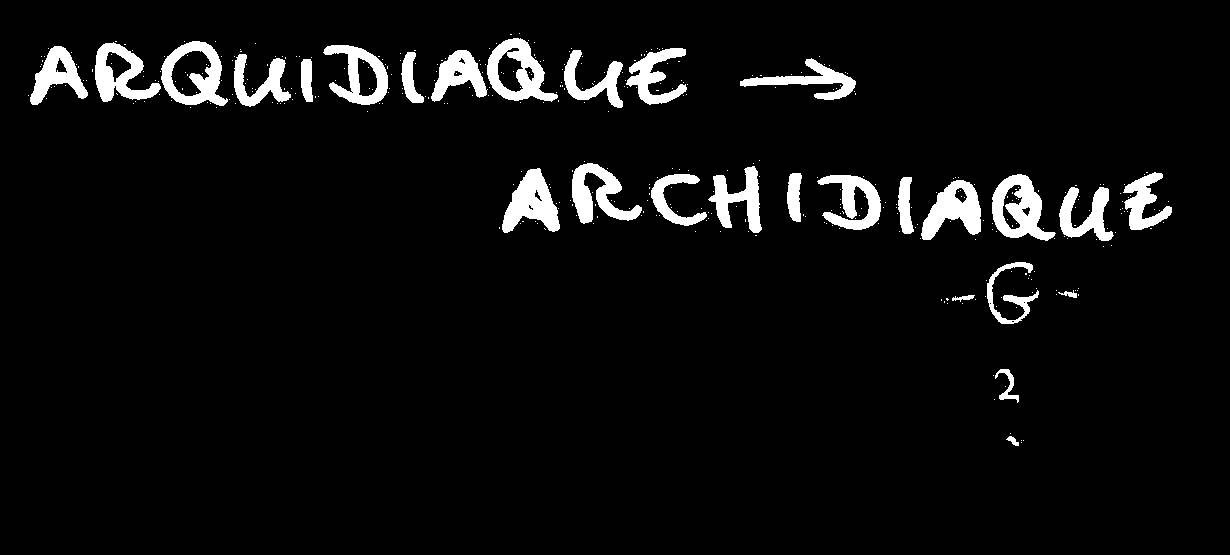 ARQUIDIAQUE →
ARCHIDIAQUE
-G-
2